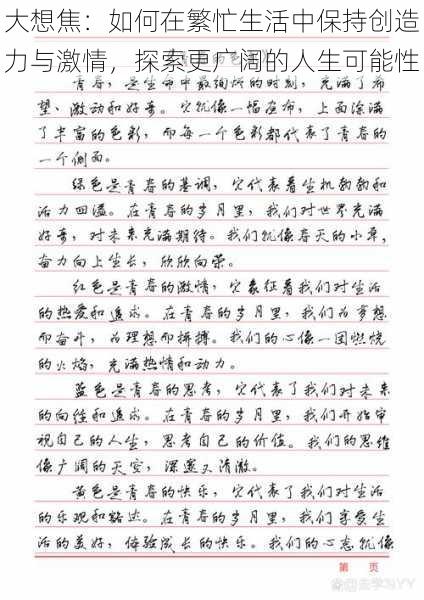 大想焦：如何在繁忙生活中保持创造
力与激情，探索更广阔的人生可能性
青春，是生命中最绚烂的时刻，充满了希
望、激动和好奇。它就像一幅画布，上面涂满
了丰富的色彩，而每一个色彩都代表了青春的
一个侧面。
绿色是青春的基调，它代表着生机勃勃和
活力四溢。在青春的岁月里，我们对世界充满
好奇，对未来充满期待。我们就像春天的小草，
奋力向上生长，欣欣向荣。
红色是青春的激情，它象征着我们对生活
的热爱和追求。在青春的岁月里，我们为梦想
而奋斗，为理想而拼搏。我们的心像一团燃烧
的火焰，充满热情和动力。
蓝色是青春的思考，它代表了我们对未来
的向往和追求。在青春的岁月里，我们开始审
视自己的人生，思考自己的价值。我们的思维
像广阔的天空，深邃又清澈。
黄色是青春的快乐，它代表了我们对生活
的乐观和豁达。在青春的岁月里，我们享受生
活的美好，体验成长的快乐。我们的心态就像
第 页
@去学习YY